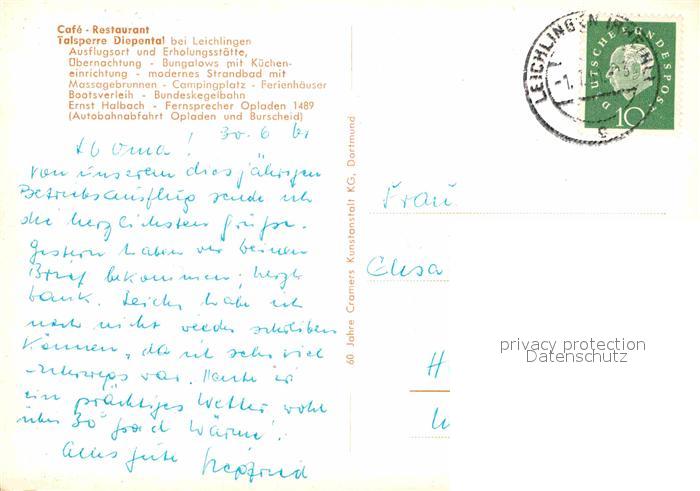 Café - Restaurant
Talsperre Diepental bei Leichlingen
Ausflugsort und Erholungsstätte,
Übernachtung - Bungalows mit Küchen-
einrichtung - modernes Strandbad mit
Massagebrunnen - Campingplatz - Ferienhäuser
Bootsverleih - Bundeskegelbahn
Ernst Halbach - Fernsprecher Opladen 1489
(Autobahnabfahrt Opladen und Burscheid)
30.6.61
Lb Oma!
Von unserem diesjährigen
Betriebsausflug sende ich
die herzlichsten Grüße.
Gestern haben wir deinen
Brief bekommen, herzl.
Dank. Leider habe ich
noch nicht wieder schreiben
können, da ich sehr viel
unterwegs war. Heute ist
ein prächtiges Wetter wohl
über 30 Grad Wärme!
Alles Gute Siegfried
60 Jahre Cramers Kunstanstalt KG, Dortmund
LEICHLINGEN
DEUTSCHE BUNDESPOST
10
Frau
Elisa
H
privacy protection
Datenschutz